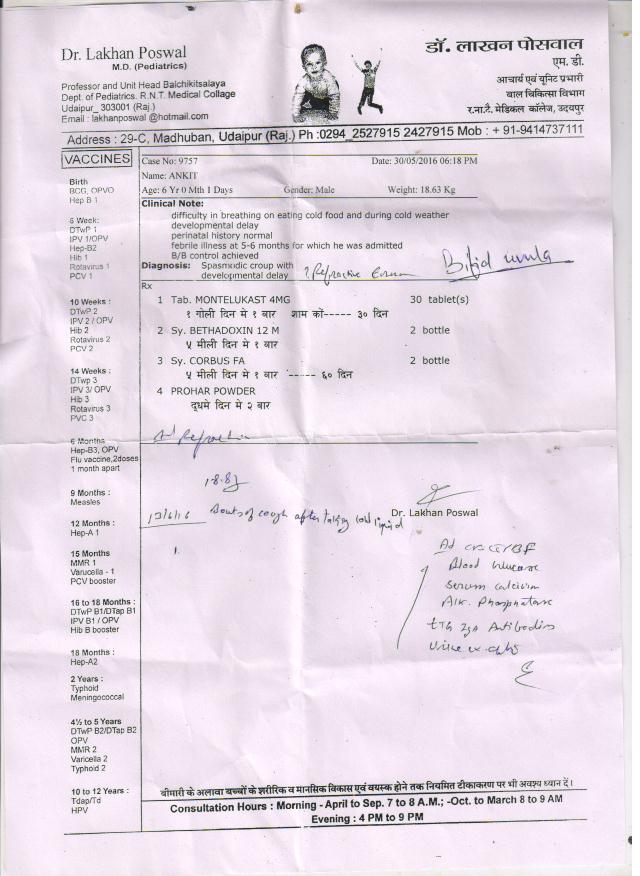 Dr. Lakhan Poswal
M.D. (Pediatrics)
Professor and Unit Head Balchikitsalaya
Dept. of Pediatrics. R.N.T. Medical Collage
Udaipur_ 303001 (Raj.)
Email : lakhanposwal @hotmail.com
डॉ. लाखन पोसवाल
एम. डी.
आचार्य एवं यूनिट प्रभारी
बाल चिकित्सा विभाग
र.ना.टै. मेडिकल कॉलेज, उदयपुर
Address : 29-C, Madhuban, Udaipur (Raj.) Ph :0294_2527915 2427915 Mob : + 91-9414737111
VACCINES
Birth
BCG, OPVO
Hep B 1
6 Week:
DTwP 1
IPV 1/OPV
Hep-B2
Hib 1
Rotavirus 1
PCV 1
10 Weeks :
DTwP 2
IPV 2 / OPV
Hib 2
Rotavirus 2
PCV 2
14 Weeks :
DTwp 3
IPV 3/ OPV
Hib 3
Rotavirus 3
PVC 3
6 Months
Hep-B3, OPV
Flu vaccine,2doses
1 month apart
9 Months :
Measles
12 Months :
Hep-A 1
15 Months
MMR 1
Varucella - 1
PCV booster
16 to 18 Months :
DTwP B1/DTap B1
IPV B1 / OPV
Hib B booster
18 Months :
Hep-A2
2 Years :
Typhoid
Meningococcal
4½ to 5 Years
DTwP B2/DTap B2
OPV
MMR 2
Varicella 2
Typhoid 2
10 to 12 Years :
Tdap/Td
HPV
Case No: 9757 Date: 30/05/2016 06:18 PM
Name: ANKIT
Age: 6 Yr 0 Mth 1 Days Gender: Male Weight: 18.63 Kg
Clinical Note:
difficulty in breathing on eating cold food and during cold weather
developmental delay
perinatal history normal
febrile illness at 5-6 months for which he was admitted
B/B control achieved
Diagnosis: Spasmodic croup with
developmental delay
? Refractive Error
Bifid uvula
Rx
1 Tab. MONTELUKAST 4MG 30 tablet(s)
१ गोली दिन मे १ बार शाम कों----- ३० दिन
2 Sy. BETHADOXIN 12 M 2 bottle
५ मीली दिन मे १ बार
3 Sy. CORBUS FA 2 bottle
५ मीली दिन मे १ बार ----- ६० दिन
4 PROHAR POWDER
दूधमे दिन मे २ बार
Ad Refraction
18.8
13/6/16 bouts of cough after taking cold liquid
Dr. Lakhan Poswal
1.
Ad
Blood Glucose
Serum calcium
Alk. Phosphatase
tTG IgA Antibodies
Urine
बीमारी के अलावा बच्चों के शरीरिक व मानसिक विकास एवं वयस्क होने तक नियमित टीकाकरण पर भी अवश्य ध्यान दें।
Consultation Hours : Morning - April to Sep. 7 to 8 A.M.; -Oct. to March 8 to 9 AM
Evening : 4 PM to 9 PM